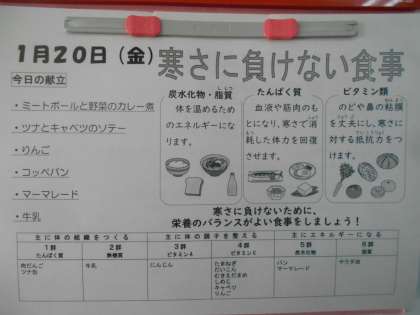 1月20日（金）
寒さに負けない食事
今日の献立
・ミートボールと野菜のカレー煮
・ツナとキャベツのソテー
・りんご
・コッペパン
・マーマレード
・牛乳
炭水化物・脂質
体を温めるため
のエネルギーにな
ります。
たんぱく質
血液や筋肉のも
とになり、寒さで消
耗した体力を回復
させます。
ビタミン類
のどや鼻の粘膜
を丈夫にし、寒さに
対する抵抗力をつ
けます。
寒さに負けないために、
栄養のバランスがよい食事をしましょう！
主に体の組織をつくる
主に体の調子を整える
主にエネルギーになる
1群
たんぱく質
2群
無機質
3群
ビタミンA
4群
ビタミンC
5群
炭水化物
6群
脂質
肉だんご
ツナ缶
牛乳
にんじん
たまねぎ
だいこん
むきえだまめ
しめじ
キャベツ
りんご
パン
マーマレード
サラダ油